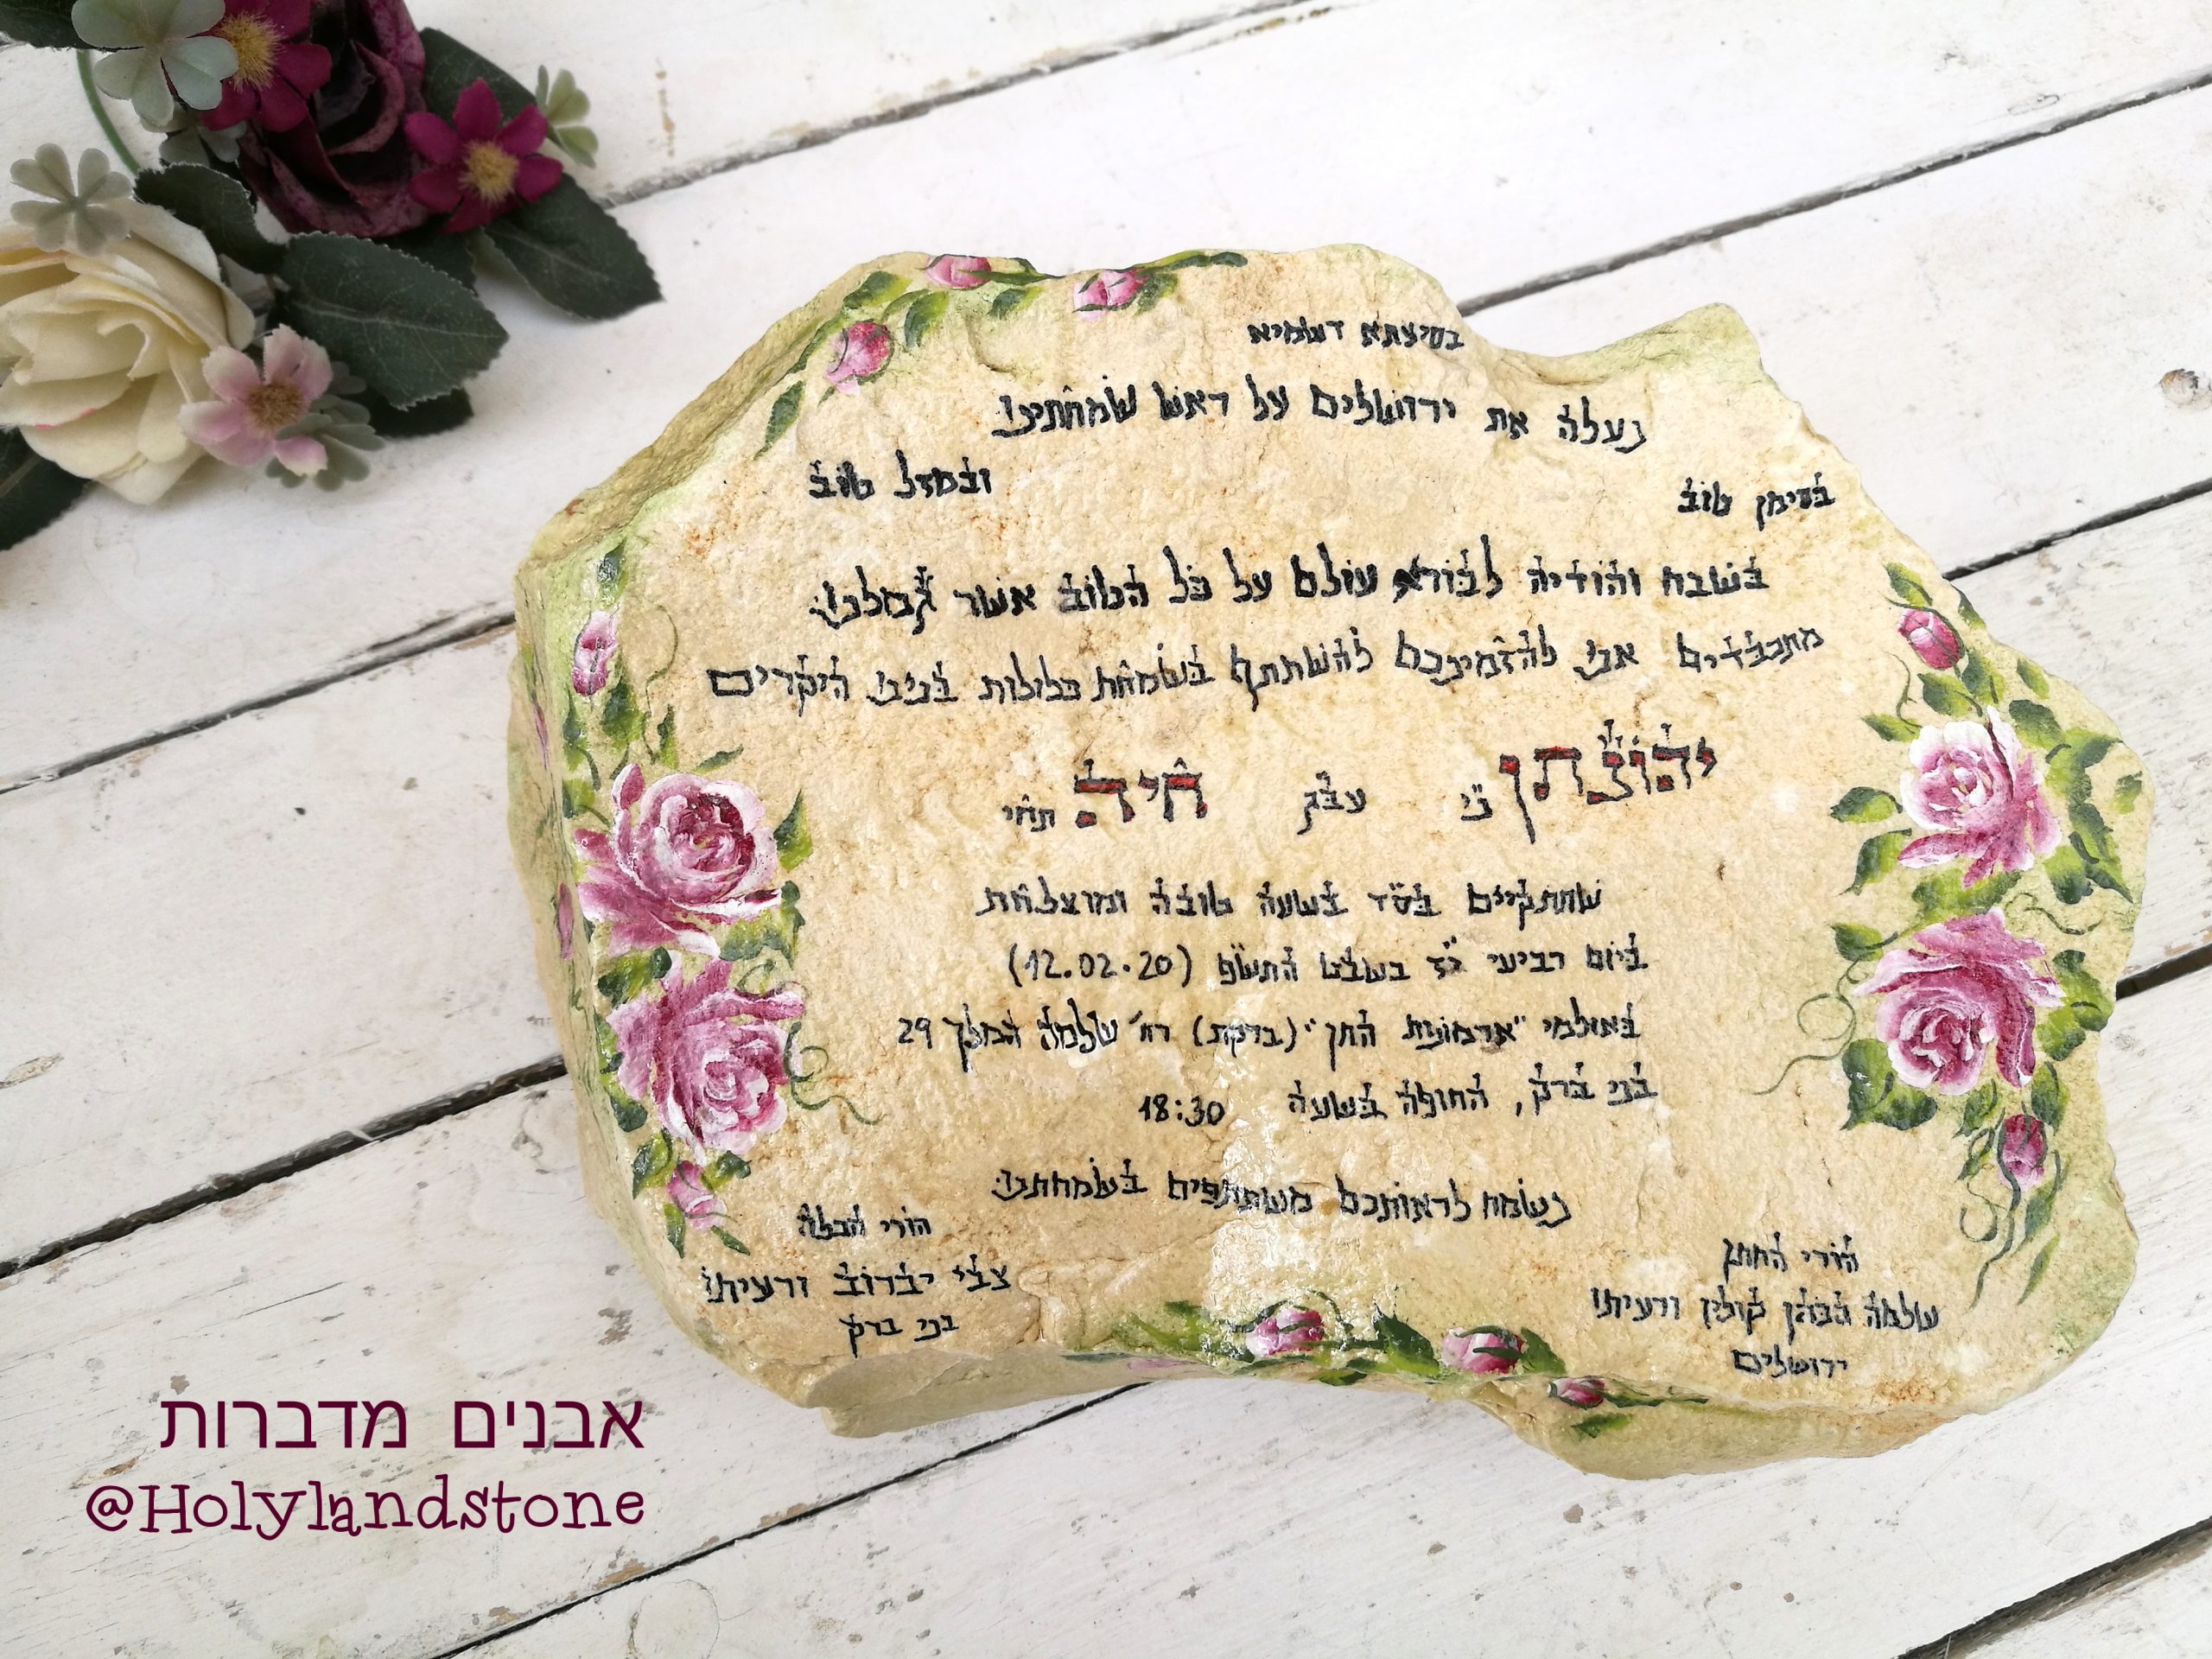 בסיעתא דשמיא
נעלה את ירושלים על ראש שמחתינו
בסימן טוב ובמזל טוב
בשבח והודיה לבורא עולם על כל הטוב אשר גמלנו
מתכבדים אנו להזמינכם להשתתף בשמחת כלולות בנינו היקרים
יהונתן ני" עב"ג חיה תחי'
שתתקיים בס"ד בשעה טובה ומוצלחת
ביום רביעי י"ז בשבט התש"פ (12.02.20)
באולמי "ארמונות החן" (ברקת) רח' שלמה המלך 29
בני ברק, החופה בשעה 18:30
נשמח לראותכם משתתפים בשמחתנו
הורי החתן
שלמה הכהן קולין ורעיתו
ירושלים
הורי הכלה
צבי יברוב ורעיתו
בני ברק
אבנים מדברות
@Holylandstone